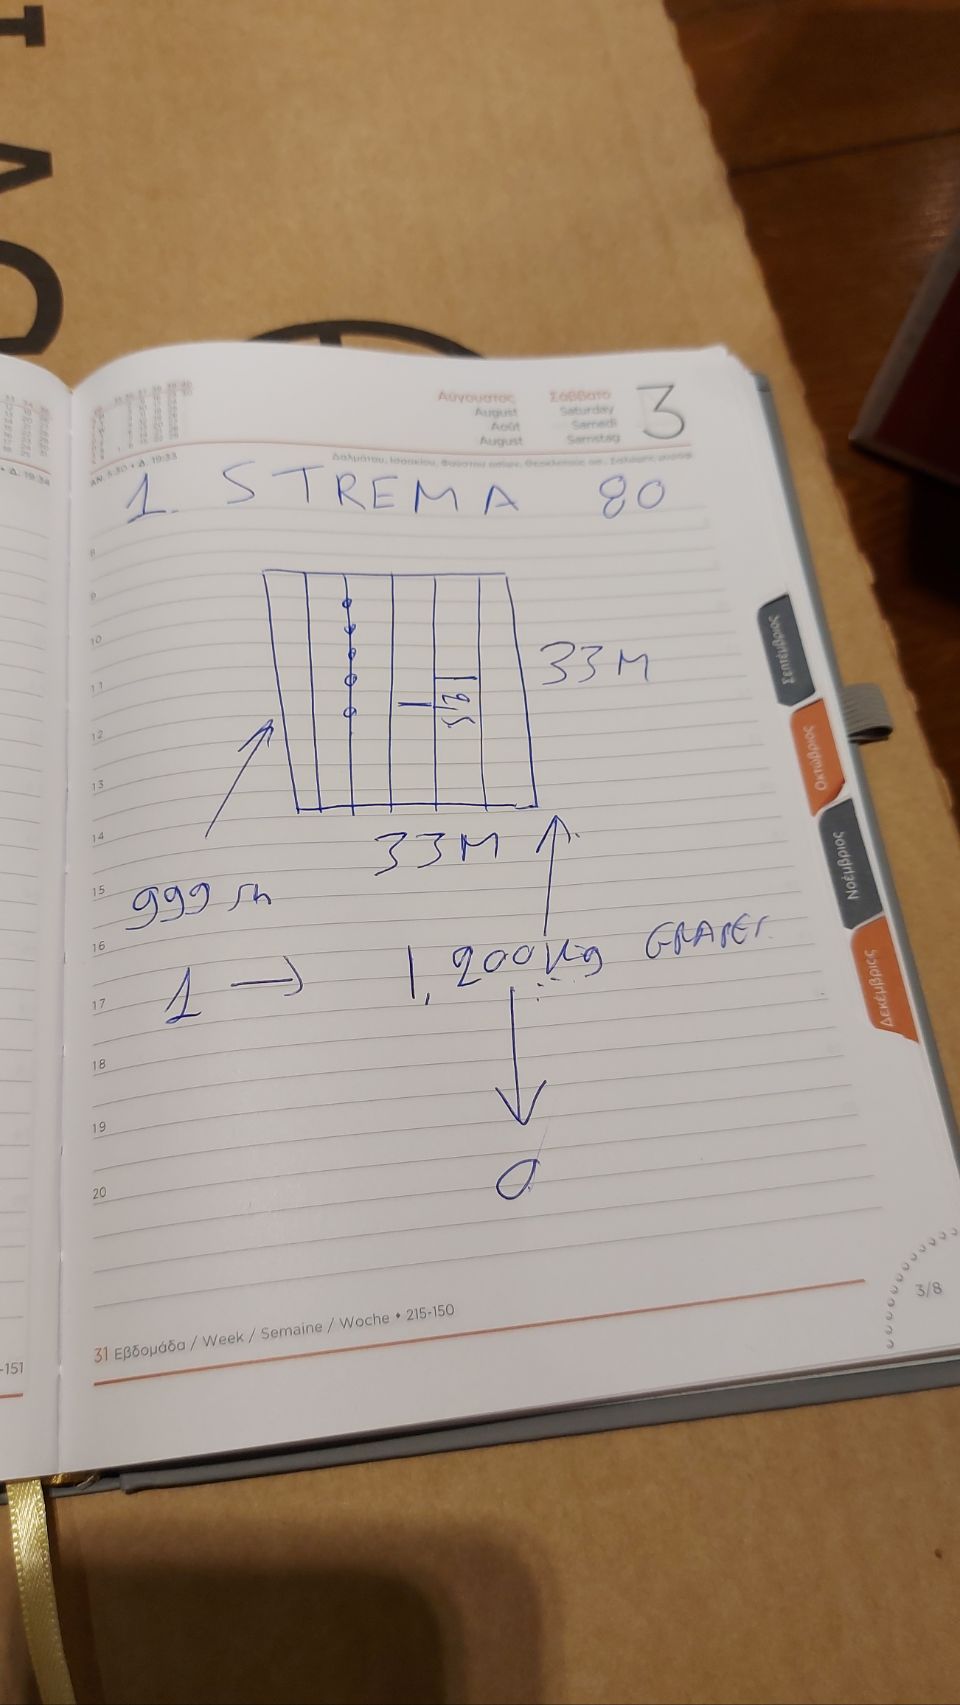 Αύγουστος Σάββατο 3
August Saturday
Août Samedi
August Samstag
ΑΝ. 5:30 • Δ. 19:33
1. STREMA 80
8
9
10
33M
11
2,5
12
13
14
33M
15
999 m
16
1 → 1,200 Kg GRAPES
17
18
19
20
Σεπτέμβριος
Οκτώβριος
Νοέμβριος
Δεκέμβριος
3/8
31 Εβδομάδα / Week / Semaine / Woche • 215-150
-151
• Δ. 19:34